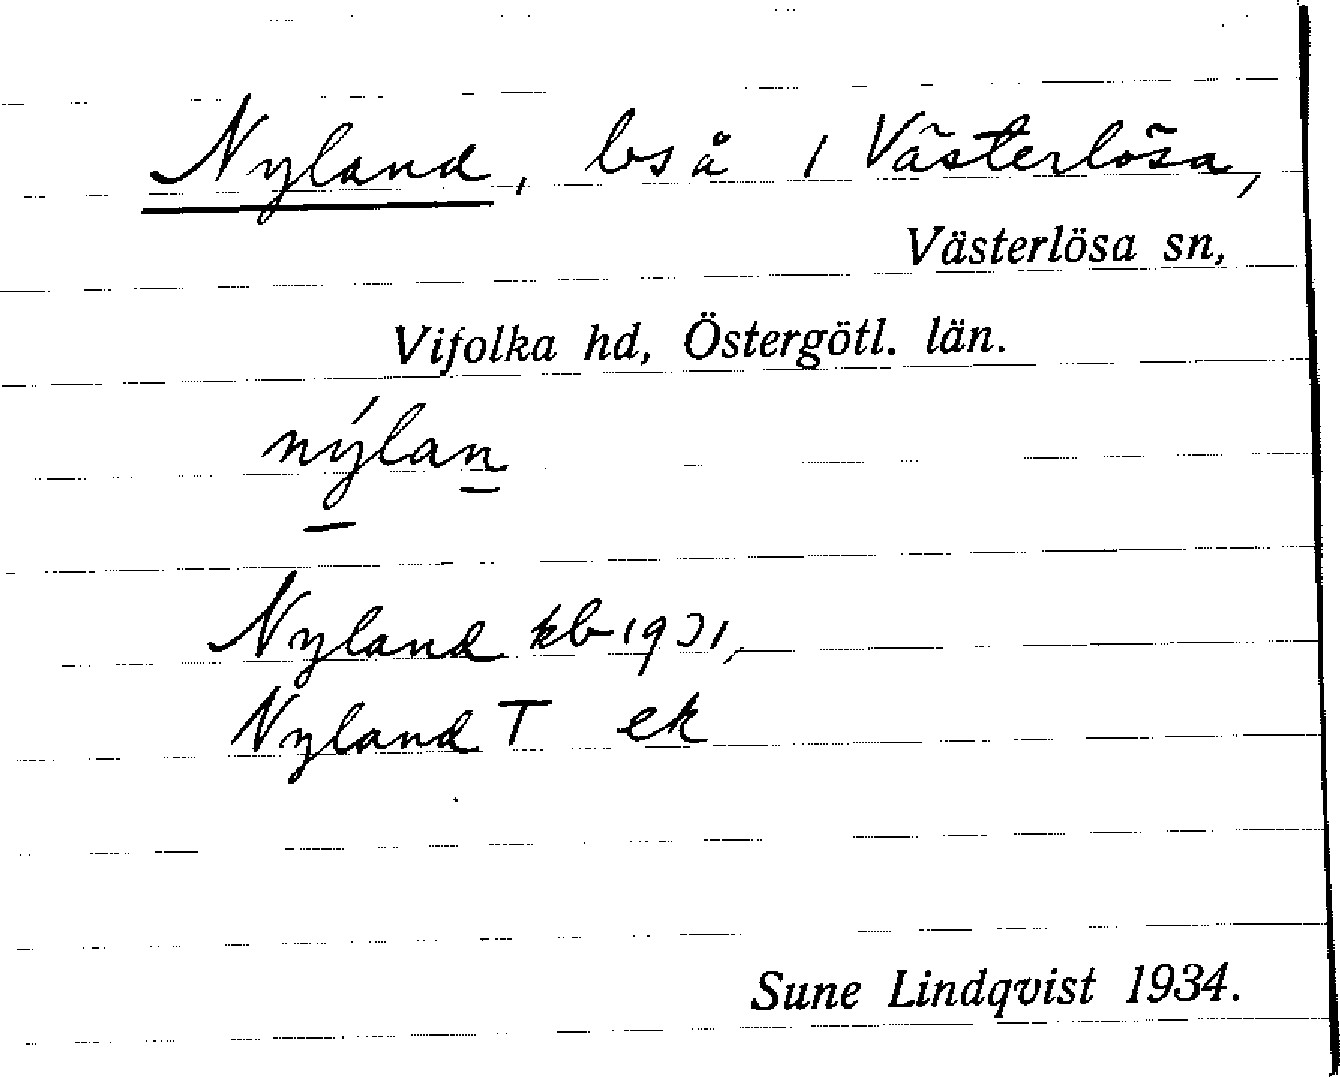 Nyland, bs å 1 Västerlösa,
Västerlösa sn,
Vifolka hd, Östergötl. län.
nýlan
Nyland kb 1931,
Nyland T ek
Sune Lindqvist 1934.